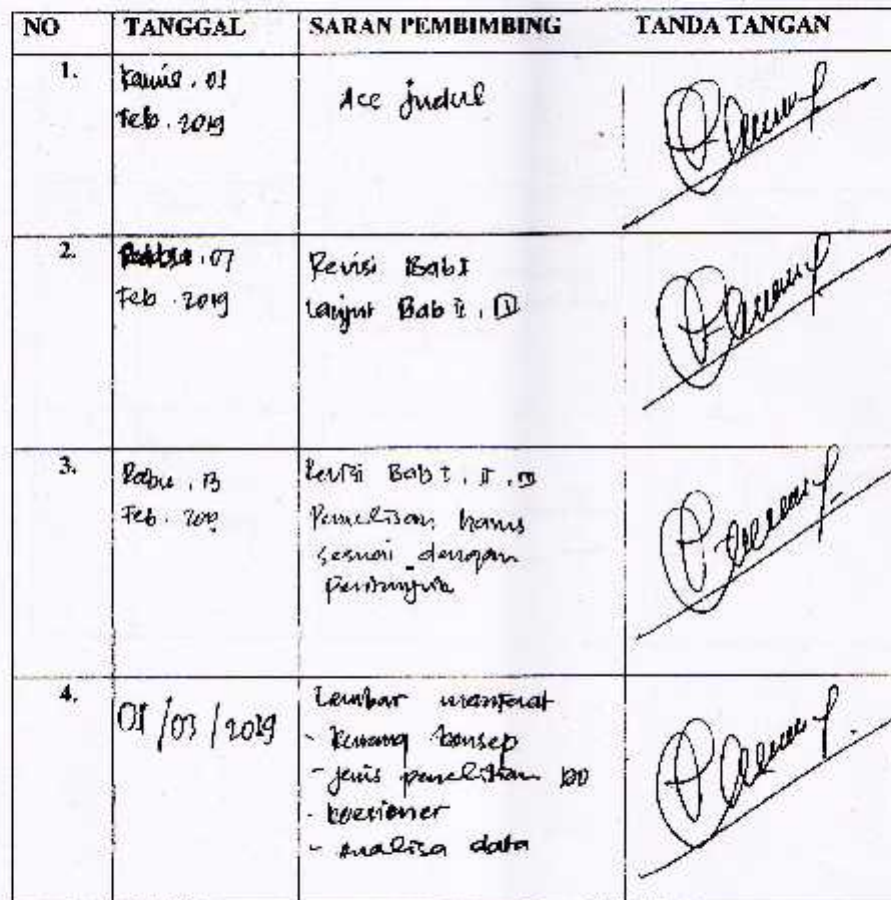 NO TANGGAL SARAN PEMBIMBING TANDA TANGAN
1. Kamis. 01
Feb. 2019
Acc judul
2. 07
Feb. 2019
Revisi Bab I
Lanjut Bab II,
3. Rabu, 13
Feb.
Revisi Bab I, II, III
Penulisan harus
sesuai dengan
4. 01/03/2019
Lembar
- konsep
- jenis penelitian
- koesioner
- analisa data